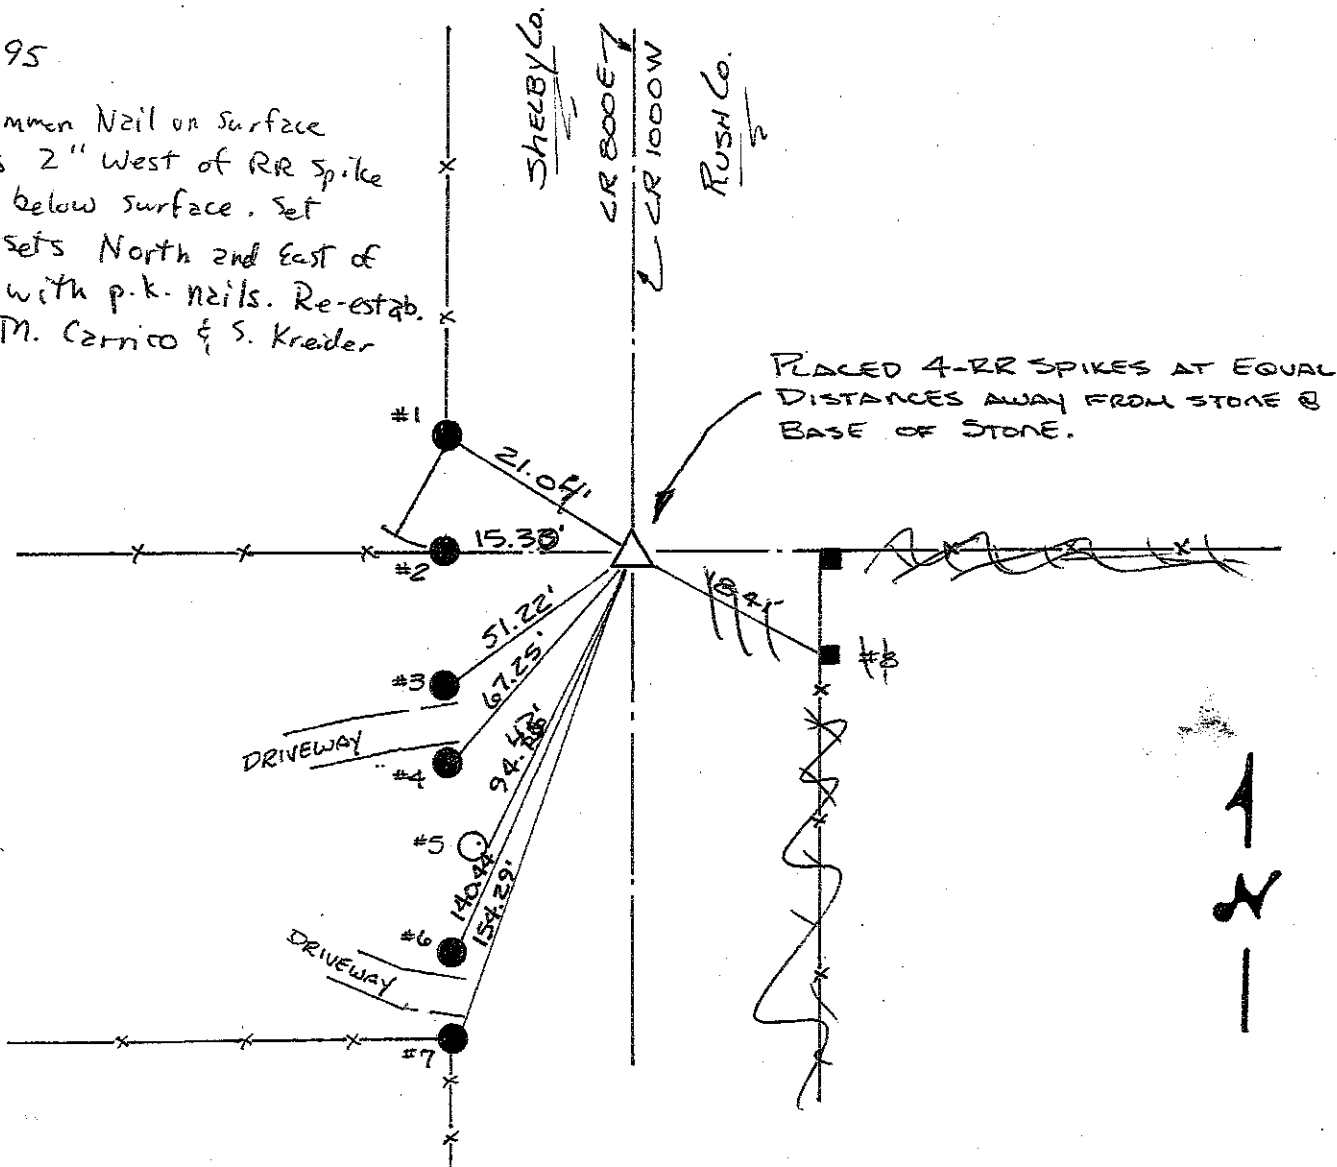 95
mmon Nail on Surface
s 2" West of RR Spike
below surface. Set
sets North and East of
with p.k. nails. Re-estab.
M. Carrico & S. Kreider
SHELBY Co.
CR 800E
CR 1000W
RUSH Co.
PLACED 4-RR SPIKES AT EQUAL
DISTANCES AWAY FROM STONE @
BASE OF STONE.
#1
21.04'
#2
15.38'
#3
51.22'
67.25'
DRIVEWAY
#4
94.43'
#5
140.44'
154.29'
#6
DRIVEWAY
#7
#8
N